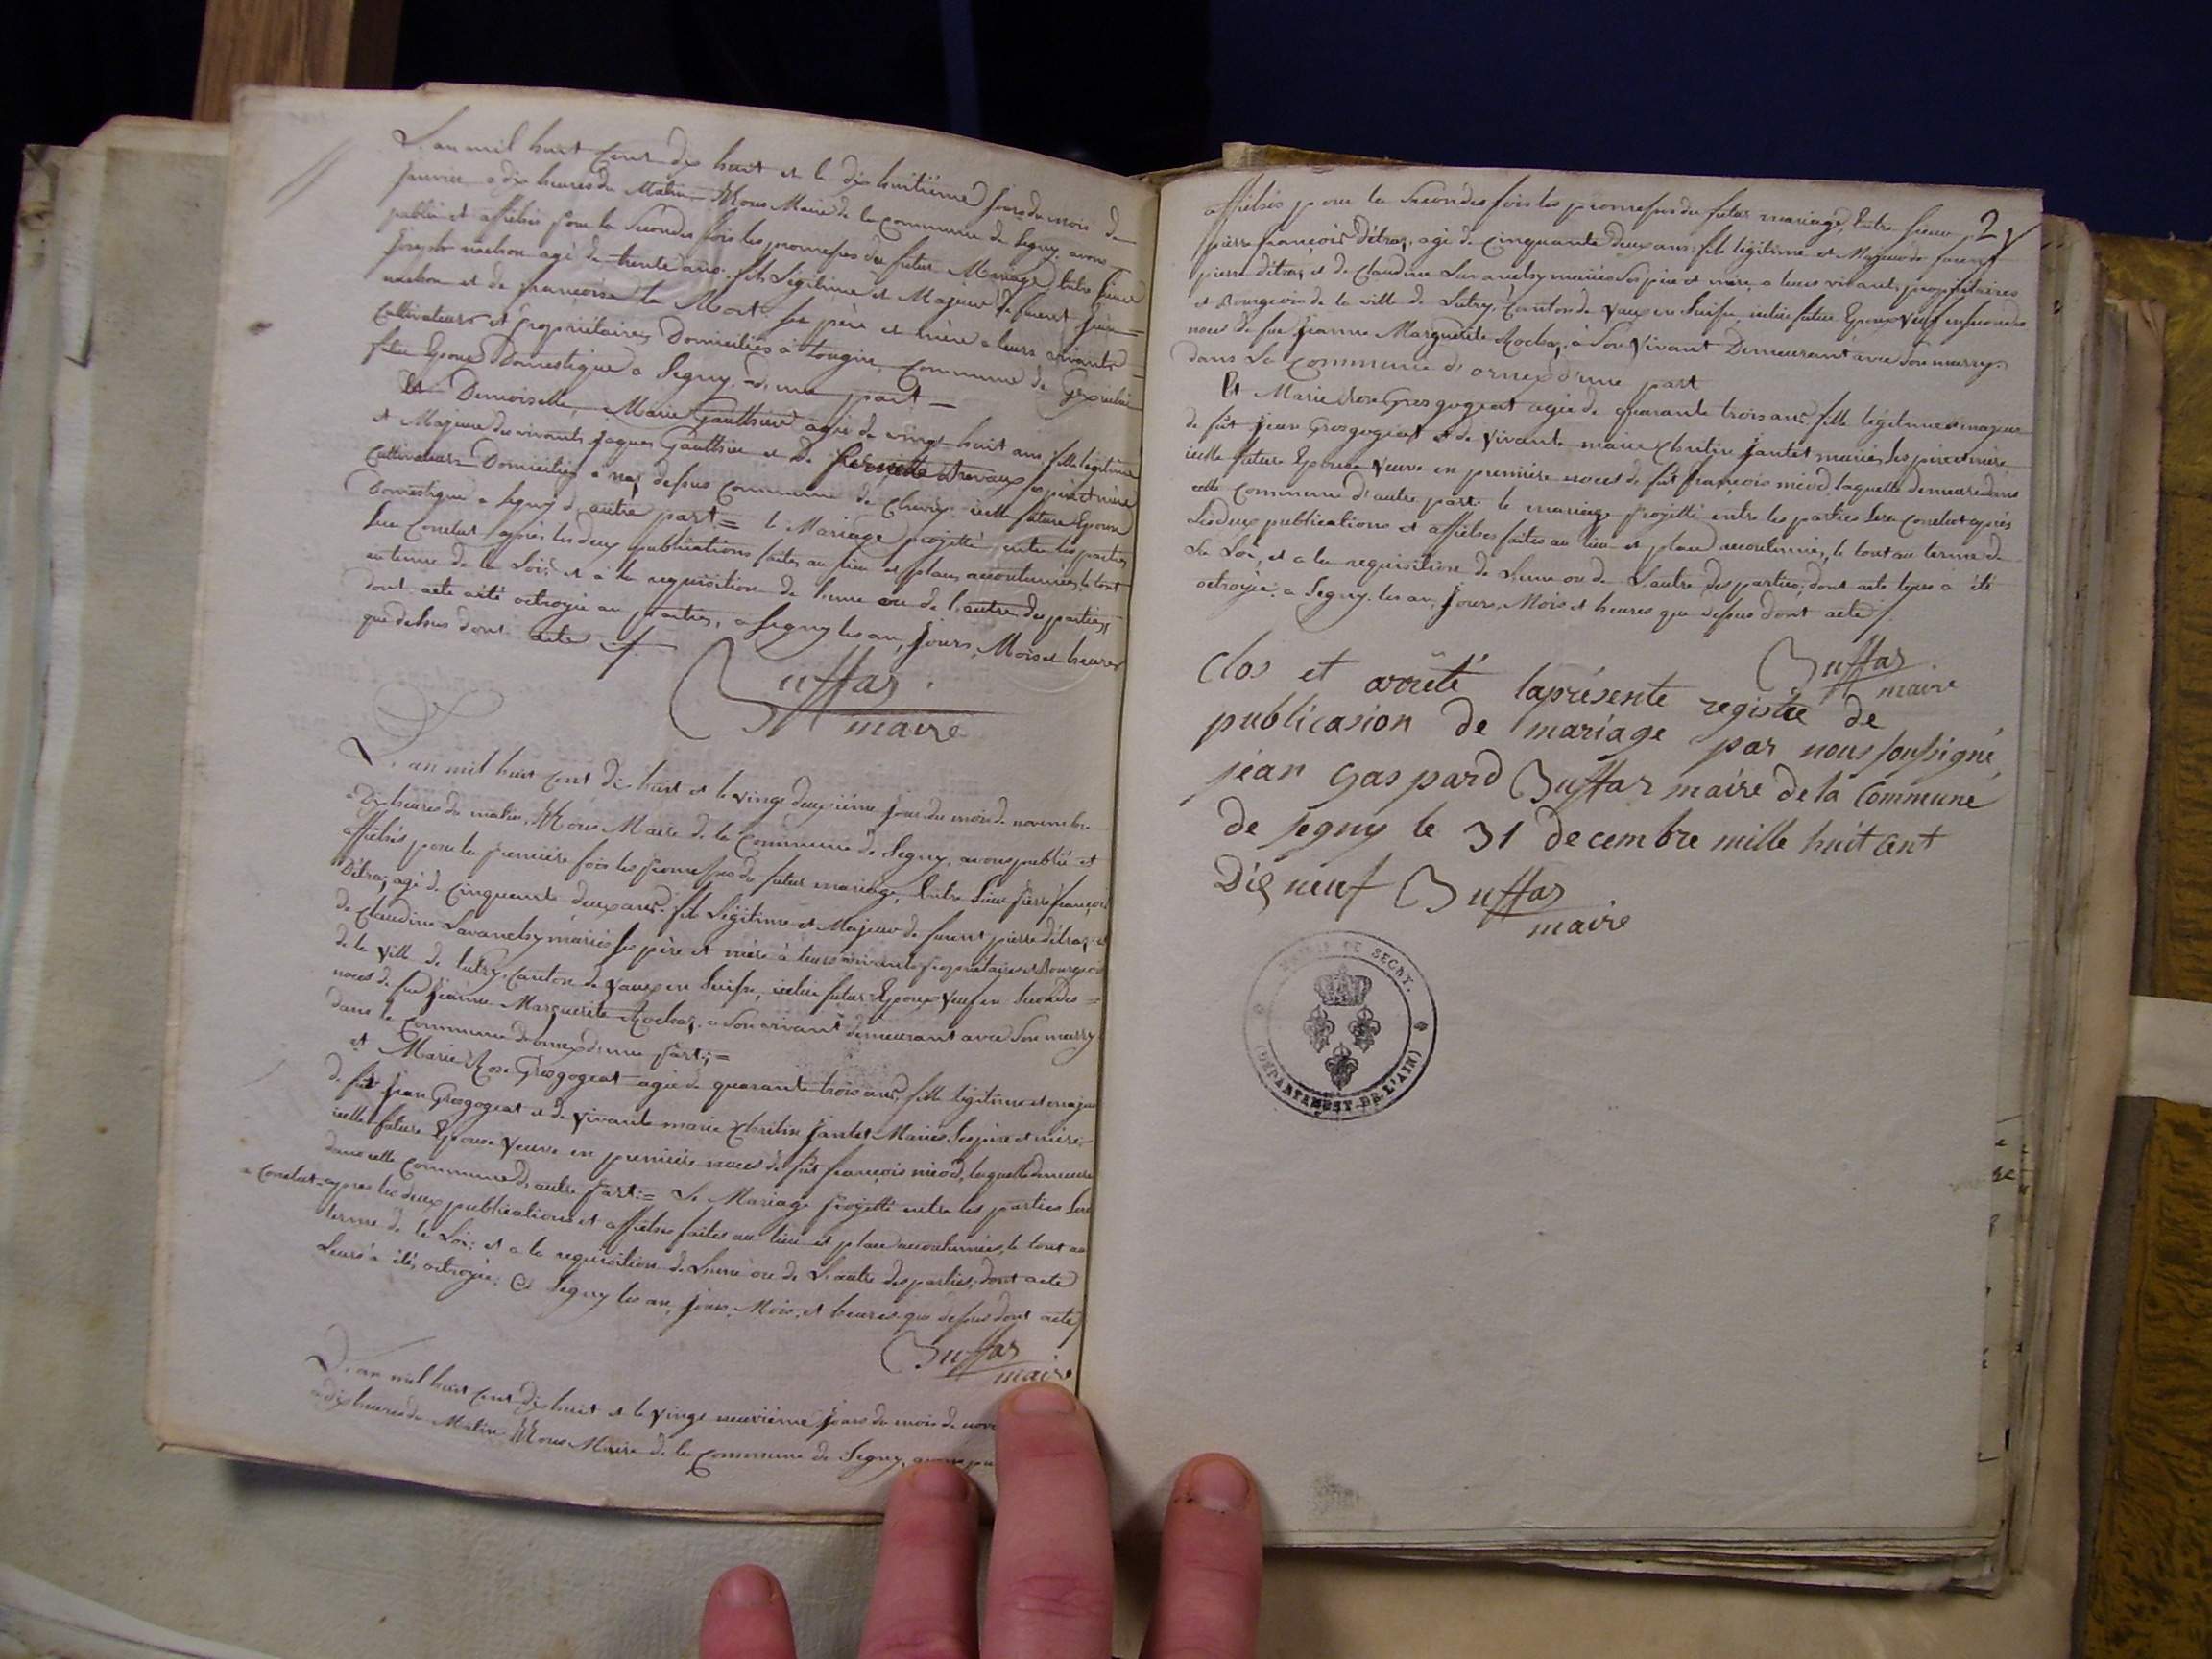 L'an mil huit cent dix huit et le dix huitiéme jour du mois de
janvier a dix heures du Matin Nous Maire de la Commune de Segny, avons
publié et affichés pour la Secondes fois les promesses du futur Mariage, Entre Sieur
Joseph nachon agé de trente ans, fils Légitime et Majeur de furent
nachon et de françoise la Mort ses père et mère a leurs vivants
Cultivateurs et propriétaires Domiciliés à tougin, Commune de Gex, icelui
futur Epoux Domestique a Segny, d'une part =
Et Demoiselle, Marie Gauthier agée de vingt huit ans fille legitime
et Majeure des vivants Jaques Gauthier et de Pernette Devaux ses père et mère
Cultivateurs Domiciliés a naz dessus Commune de Chevry, icelle future Epouse
Domestique a Segny d'autre part = le Mariage projetté entre les parties
Sera Conclut après les deux publications faites au lieu et places accoutumées, le tout
au terme de la Loi; et à la requisition de l'une ou de l'autre des parties,
dont acte a été octroyée au parties, a Segny les an, Jours, Mois et heures
que dessus dont acte
Buffaz
maire
L'an mil huit cent dix huit et le vingt deuxiéme jour du mois de novembre
a Dix heures du matin, Nous Maire de la Commune de Segny, avons publié et
affichés pour la première fois les promesses du futur mariage, Entre Sieur pierre françois
Détraz, agé de Cinquante deux ans, fils Légitime et Majeur de furent pierre détraz et
de Claudine Lavanchy mariés ses père et mère à leurs vivants propriétaires et Bourgeois
de la ville de Lutry, Canton de Vaux en Suisse, icelui futur Epoux Veuf en Secondes =
noces de feu Jeanne Marguerite Rochaz, a Son vivant demeurant avec Son marry
dans la Commune d'ornex d'une part; =
et Marie Rose Grosgogeat agée de quarante trois ans, fille légitime et majeure
de fût Jean Grosgogeat et de vivante marie Christine Jantet Mariés, Ses père et mère,
icelle future Epouse Veuve en première noces de fût françois nicod, laquelle demeure
dans cette Commune d'autre part; = Le Mariage projetté entre les parties Sera
Conclut après les deux publications et affiches faites au lieu et place accoutumées, le tout au
terme de la Loi; et a la requisition de L'une ou de L'autre des parties, dont acte
Leurs à été, octroyée, A Segny les an, jours, Mois, et heures que dessus dont acte
Buffaz
maire
L'an mil huit Cent dix huit et le vingt neuviéme jours du mois de nov
a dix heures du Matin Nous Maire de la Commune de Segny, avons pu
2
affichés pour la Secondes fois les promesses du futur mariage, Entre Sieur
pierre françois Détraz, agé de Cinquante deux ans, fils légitime et Majeur de furent
pierre détraz et de Claudine Lavanchy mariés Ses père et mère, a leurs vivants propriétaires
et Bourgeois de la ville de Lutry, Canton de Vaux en Suisse, icelui futur Epoux Veuf en Secondes
noces de feu Jeanne Marguerite Rochaz, à Son Vivant Demeurant avec Son marry
dans La Commune d'ornex d'une part
Et Marie Rose Grosgogeat agée de quarante trois ans, fille légitime et majeure
de fût Jean Grosgogeat et de Vivante marie Christine Jantet mariés, Ses père et mère
icelle future Epouse Veuve en première noces de fût françois nicod, laquelle demeure dans
cette Commune d'autre part. le mariage projetté entre les parties Sera Conclut après
Les deux publications et affiches faites au lieu et place accoutumées, le tout au terme de
La Loi, et a la requisition de L'une ou de L'autre des parties, dont acte leurs à été
octroyée, a Segny, les an, Jours, Mois et heures que dessus dont acte
Buffaz
maire
clos et arrêté laprésente registre de
publicasion de mariage par nous soussigné,
jéan gaspard Buffaz maire de la Commune
de segny le 31 decembre mille huit cent
Dix neuf Buffaz
maire
MAIRIE DE SEGNY.
(DÉPARTEMENT DE L'AIN)